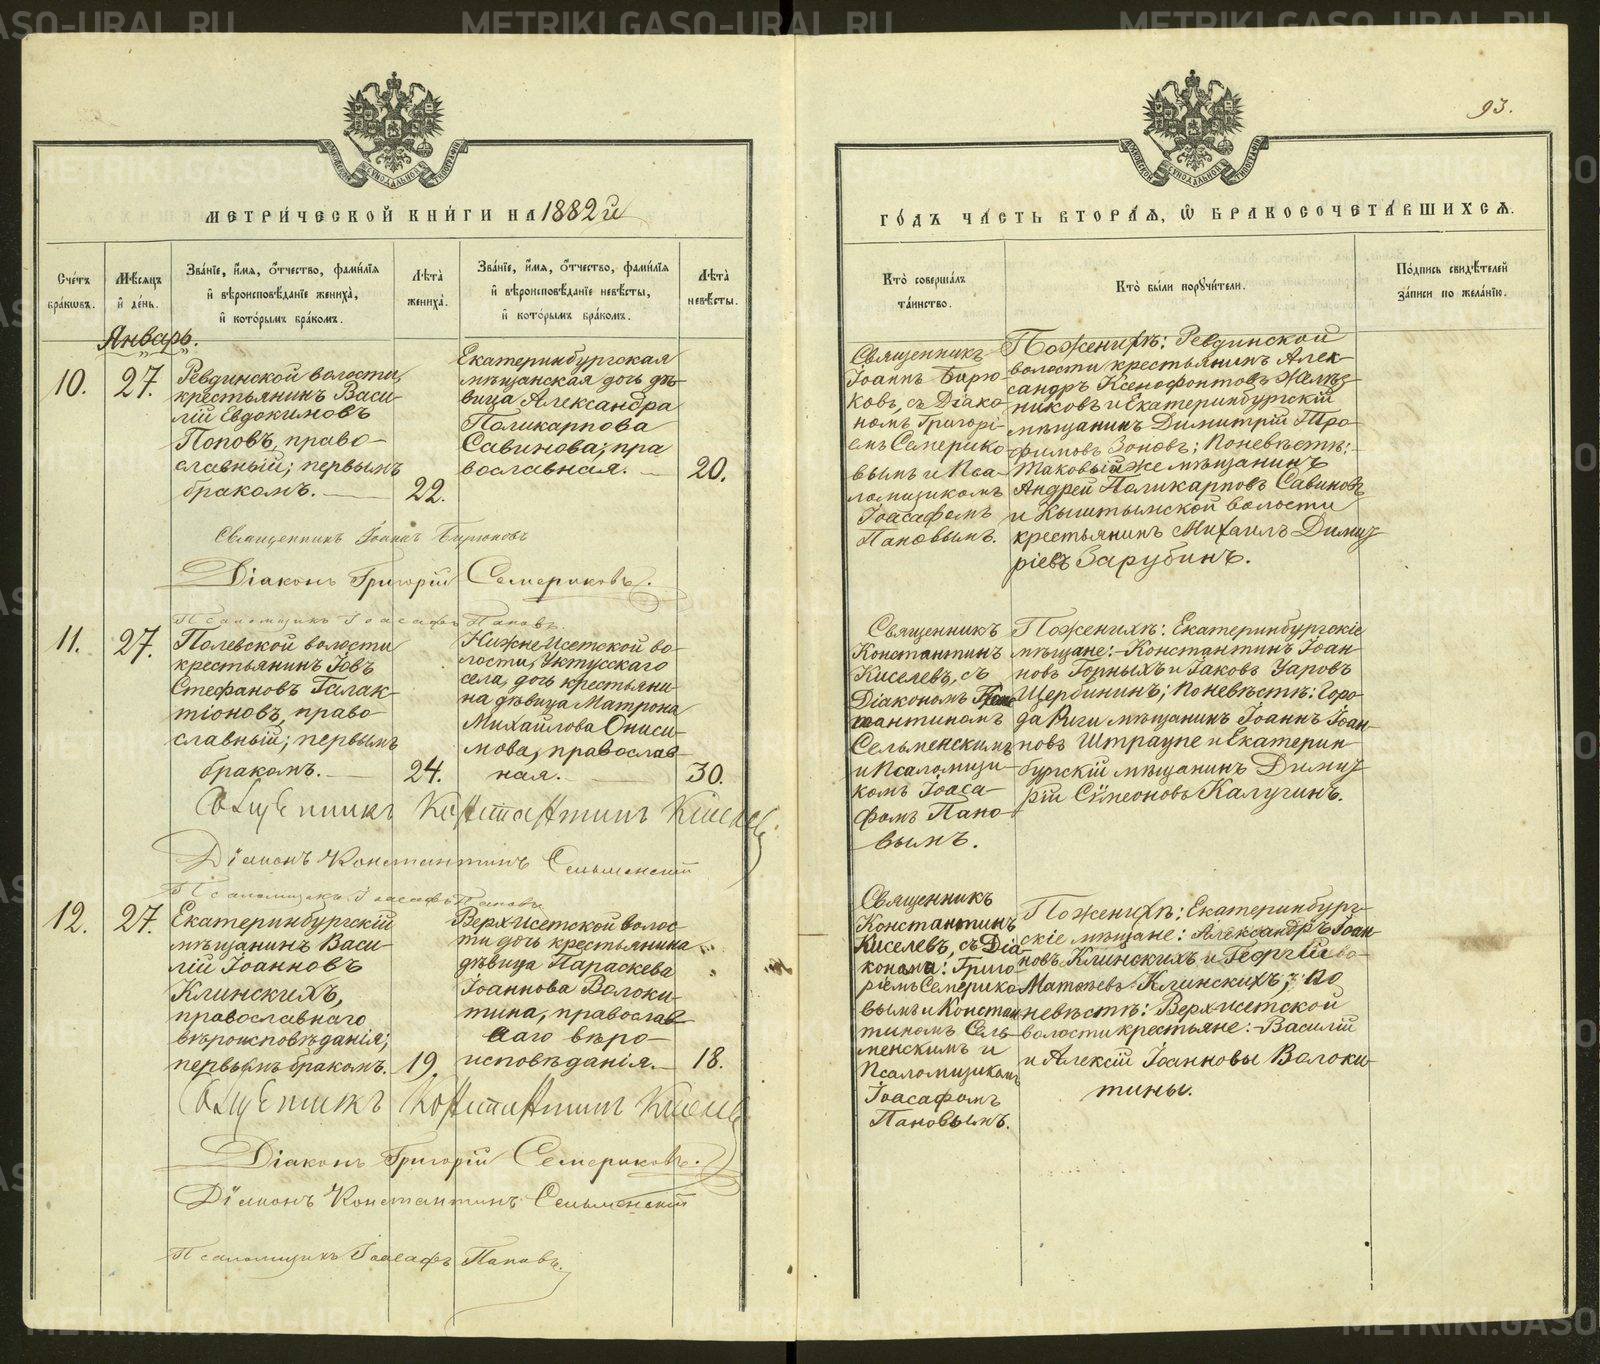 93.
МЕТРИ́ЧЕСКОЙ КНИ́ГИ НА 1882 й
ГО́ДЪ ЧА́СТЬ ВТОРА́Ѧ, Ѽ БРАКОСОЧЕТА́ВШИХСѦ.
Сче́тъ бра́кѡвъ.
Мѣ́сѧцъ и҆ де́нь.
Зва́нїе, и҆́мѧ, ѻ҆́тчество, фами́лїѧ
и҆ вѣроисповѣ́данїе жениха̀,
и҆ кото́рымъ бра́комъ.
Лѣ́та̀
жениха̀.
Зва́нїе, и҆́мѧ, ѻ҆́тчество, фами́лїѧ
и҆ вѣроисповѣ́данїе невѣ́сты,
и҆ кото́рымъ бра́комъ.
Лѣ́та̀
невѣ́сты.
Кто̀ соверша́лъ
та́инство.
Кто̀ бы́ли порꙋчи́тели.
По́дпись свидѣ́телей
за́писи по жела́нїю.
Январь.
10.
27.
Ревдинской волости,
крестьянинъ Васи-
лій Евдокимовъ
Поповъ, право-
славный; первымъ
бракомъ.
22.
Екатеринбургская
мѣщанская дочь дѣ-
вица Александра
Поликарпова
Савинова; пра
вославная.
20.
Священникъ
Іоаннъ Бирю-
ковъ, съ Діако-
номъ Григорі-
емъ Семерико-
вымъ и Пса-
ломщикомъ
Іоасафомъ
Пановымъ.
По женихѣ: Ревдинской
волости крестьянинъ Алек-
сандръ Ксенофонтовъ Желѣз-
никовъ и Екатеринбургскій
мѣщанинъ Димитрій Тро-
фимовъ Зоновъ; по невѣстѣ:
таковый же мѣщанинъ
Андрей Поликарповъ Савиновъ
и Кыштымской волости
крестьянинъ Михаилъ Димит
ріевъ Зарубинъ.
Священникъ Іоаннъ Бирюковъ
Діаконъ Григорій Семериковъ.
Псаломщикъ Іоасафъ Пановъ.
11.
27.
Полевской волости
крестьянинъ Іовъ
Стефановъ Галак-
тіоновъ, право-
славный; первымъ
бракомъ.
24.
Нижне Исетской во-
лости, Уктусскаго
села, дочь крестьяни-
на дѣвица Матрона
Михайлова Ониси-
мова, православ-
ная.
30.
Священникъ
Константинъ
Киселевъ, съ
Діакономъ Конс
тантиномъ
Сельменскимъ
и Псаломщи-
комъ Іоаса-
фомъ Пано-
вымъ.
По женихѣ: Екатеринбургскіе
мѣщане: Константинъ Іоан-
новъ Горныхъ и Іаковъ Уаровъ
Щербининъ; по невѣстѣ: горо-
да Риги мѣщанинъ Іоаннъ Іоан-
новъ Штраупе и Екатерин-
бургскій мѣщанинъ Димит
рій Сѷмеоновъ Калугинъ.
Священникъ Константинъ Киселевъ
Діаконъ Константинъ Сельменскій
Псаломщикъ Іоасафъ Пановъ
12.
27.
Екатеринбургскій
мѣщанинъ Васи-
лій Іоанновъ
Клинскихъ,
православнаго
вѣроисповѣданія;
первымъ бракомъ.
19.
Верхъ Исетской волос-
ти дочь крестьянина
дѣвица Параскева
Іоаннова Волоки-
тина, православ
наго вѣро-
исповѣданія.
18.
Священникъ
Константинъ
Киселевъ, съ Діа-
конами: Григо-
ріемъ Семерико-
вымъ и Констан
тиномъ Сель-
менскимъ и
Псаломщикомъ
Іоасафомъ
Пановымъ.
По женихѣ: Екатеринбург-
скіе мѣщане: Александръ Іоан-
новъ Клинскихъ и Георгій
Матѳеевъ Клинскихъ; по
невѣстѣ: Верхъ Исетской
волости крестьяне: Василій
и Алексій Іоанновы Волоки-
тины.
Священникъ Константинъ Киселевъ
Діаконъ Григорій Семериковъ.
Діаконъ Константинъ Сельменскій
Псаломщикъ Іоасафъ Пановъ.
METRIKI.GASO-URAL.RU